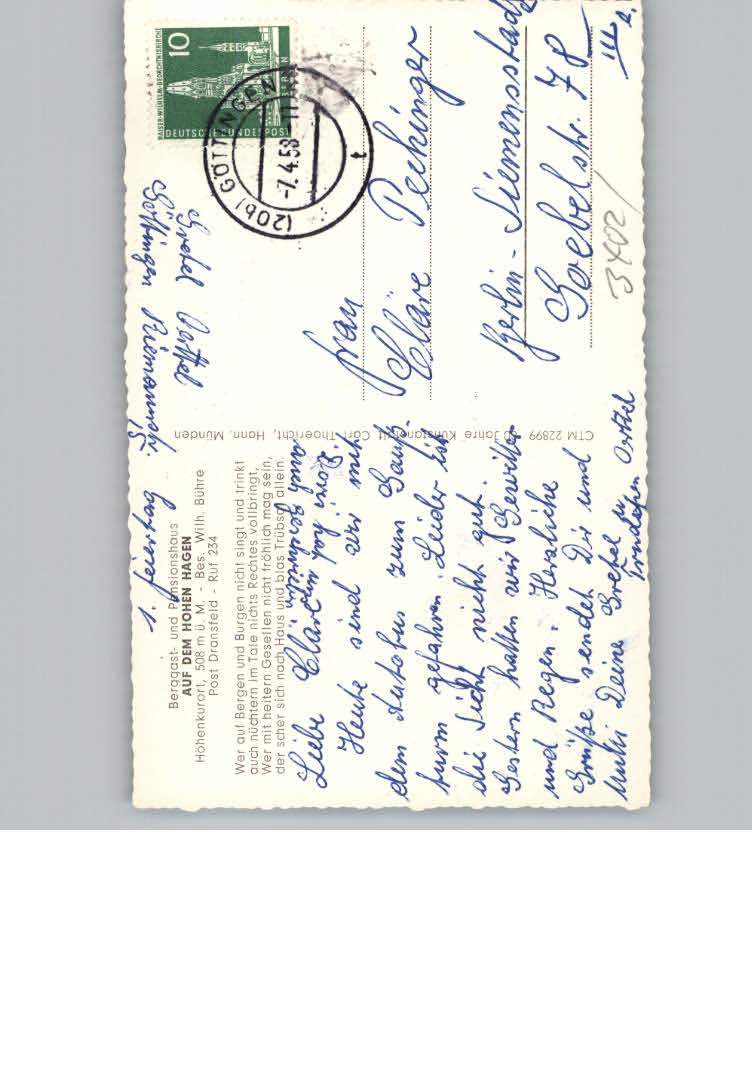 1. Feiertag
Berggast- und Pensionshaus
AUF DEM HOHEN HAGEN
Höhenkurort, 508 m ü. M. - Bes. Wilh. Bühre
Post Dransfeld - Ruf 234
Wer auf Bergen und Burgen nicht singt und trinkt
auch nüchtern im Tale nichts Rechtes vollbringt,
Wer mit heitern Gesellen nicht fröhlich mag sein,
der scher sich nach Haus und blas Trübsal allein.
Liebe Cläre
Heute sind wir mit
dem Autobus zum Gauß-
turm gefahren. Leider ist
die Sicht nicht gut.
Gestern hatten wir Gewitter
und Regen. Herzliche
Grüße sendet Dir und
Mutti Deine Gretel Oertel
CTM 22899 Jahre Kunstanstalt Carl Thoericht, Hann. Münden
Gretel Oertel
Göttingen
10
KAISER-WILHELM-GEDÄCHTNISKIRCHE
DEUTSCHE BUNDESPOST
BERLIN
(20b) GÖTTINGEN
-7.4.58-11
t
Frau
Cläre Pechinger
Berlin-Siemensstadt
Goebelstr. 78
III
3402/